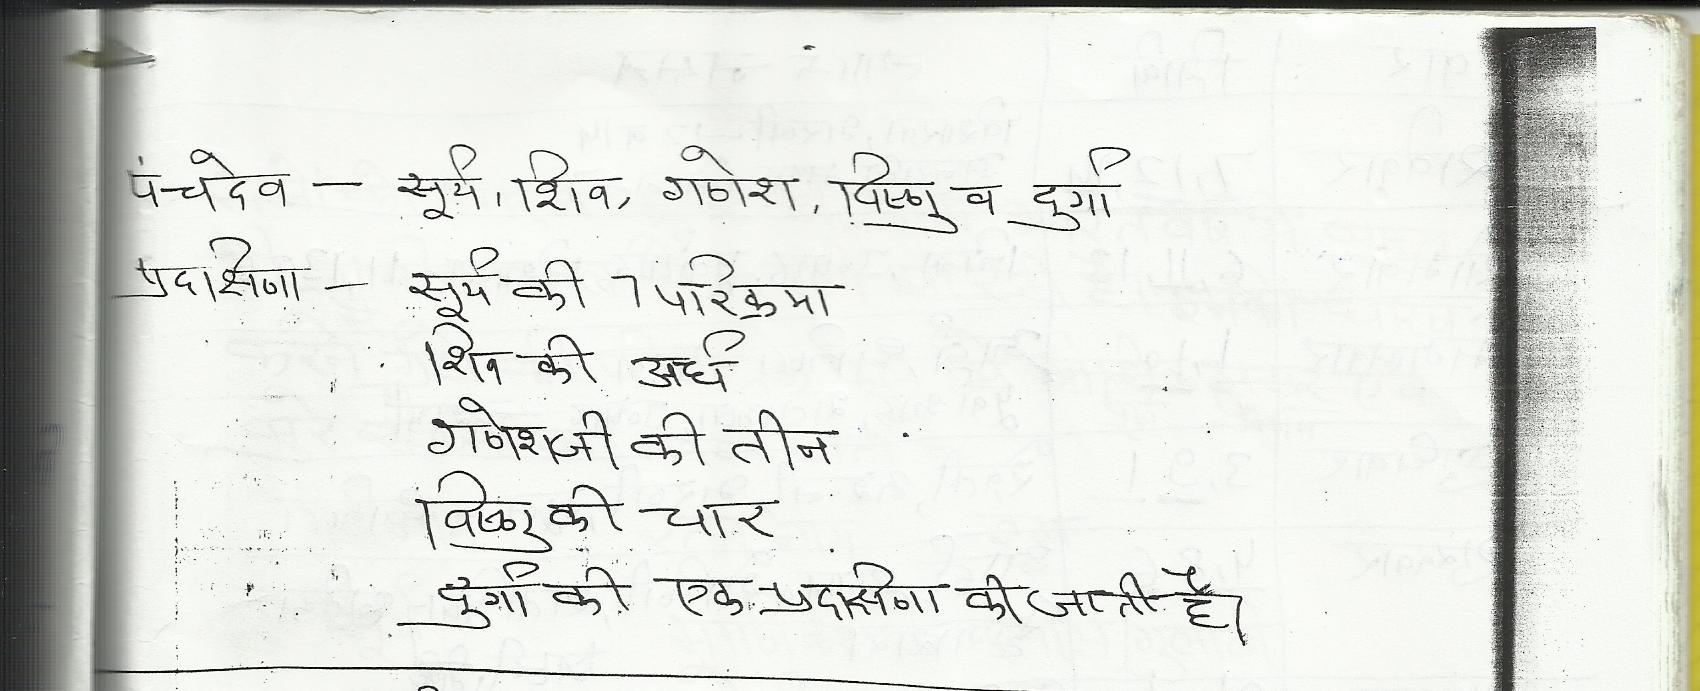 पंचदेव — सूर्य, शिव, गणेश, विष्णु व दुर्गा
प्रदक्षिणा — सूर्य की 7 परिक्रमा
शिव की अर्ध
गणेशजी की तीन
विष्णु की चार
दुर्गा की एक प्रदक्षिणा की जाती है।